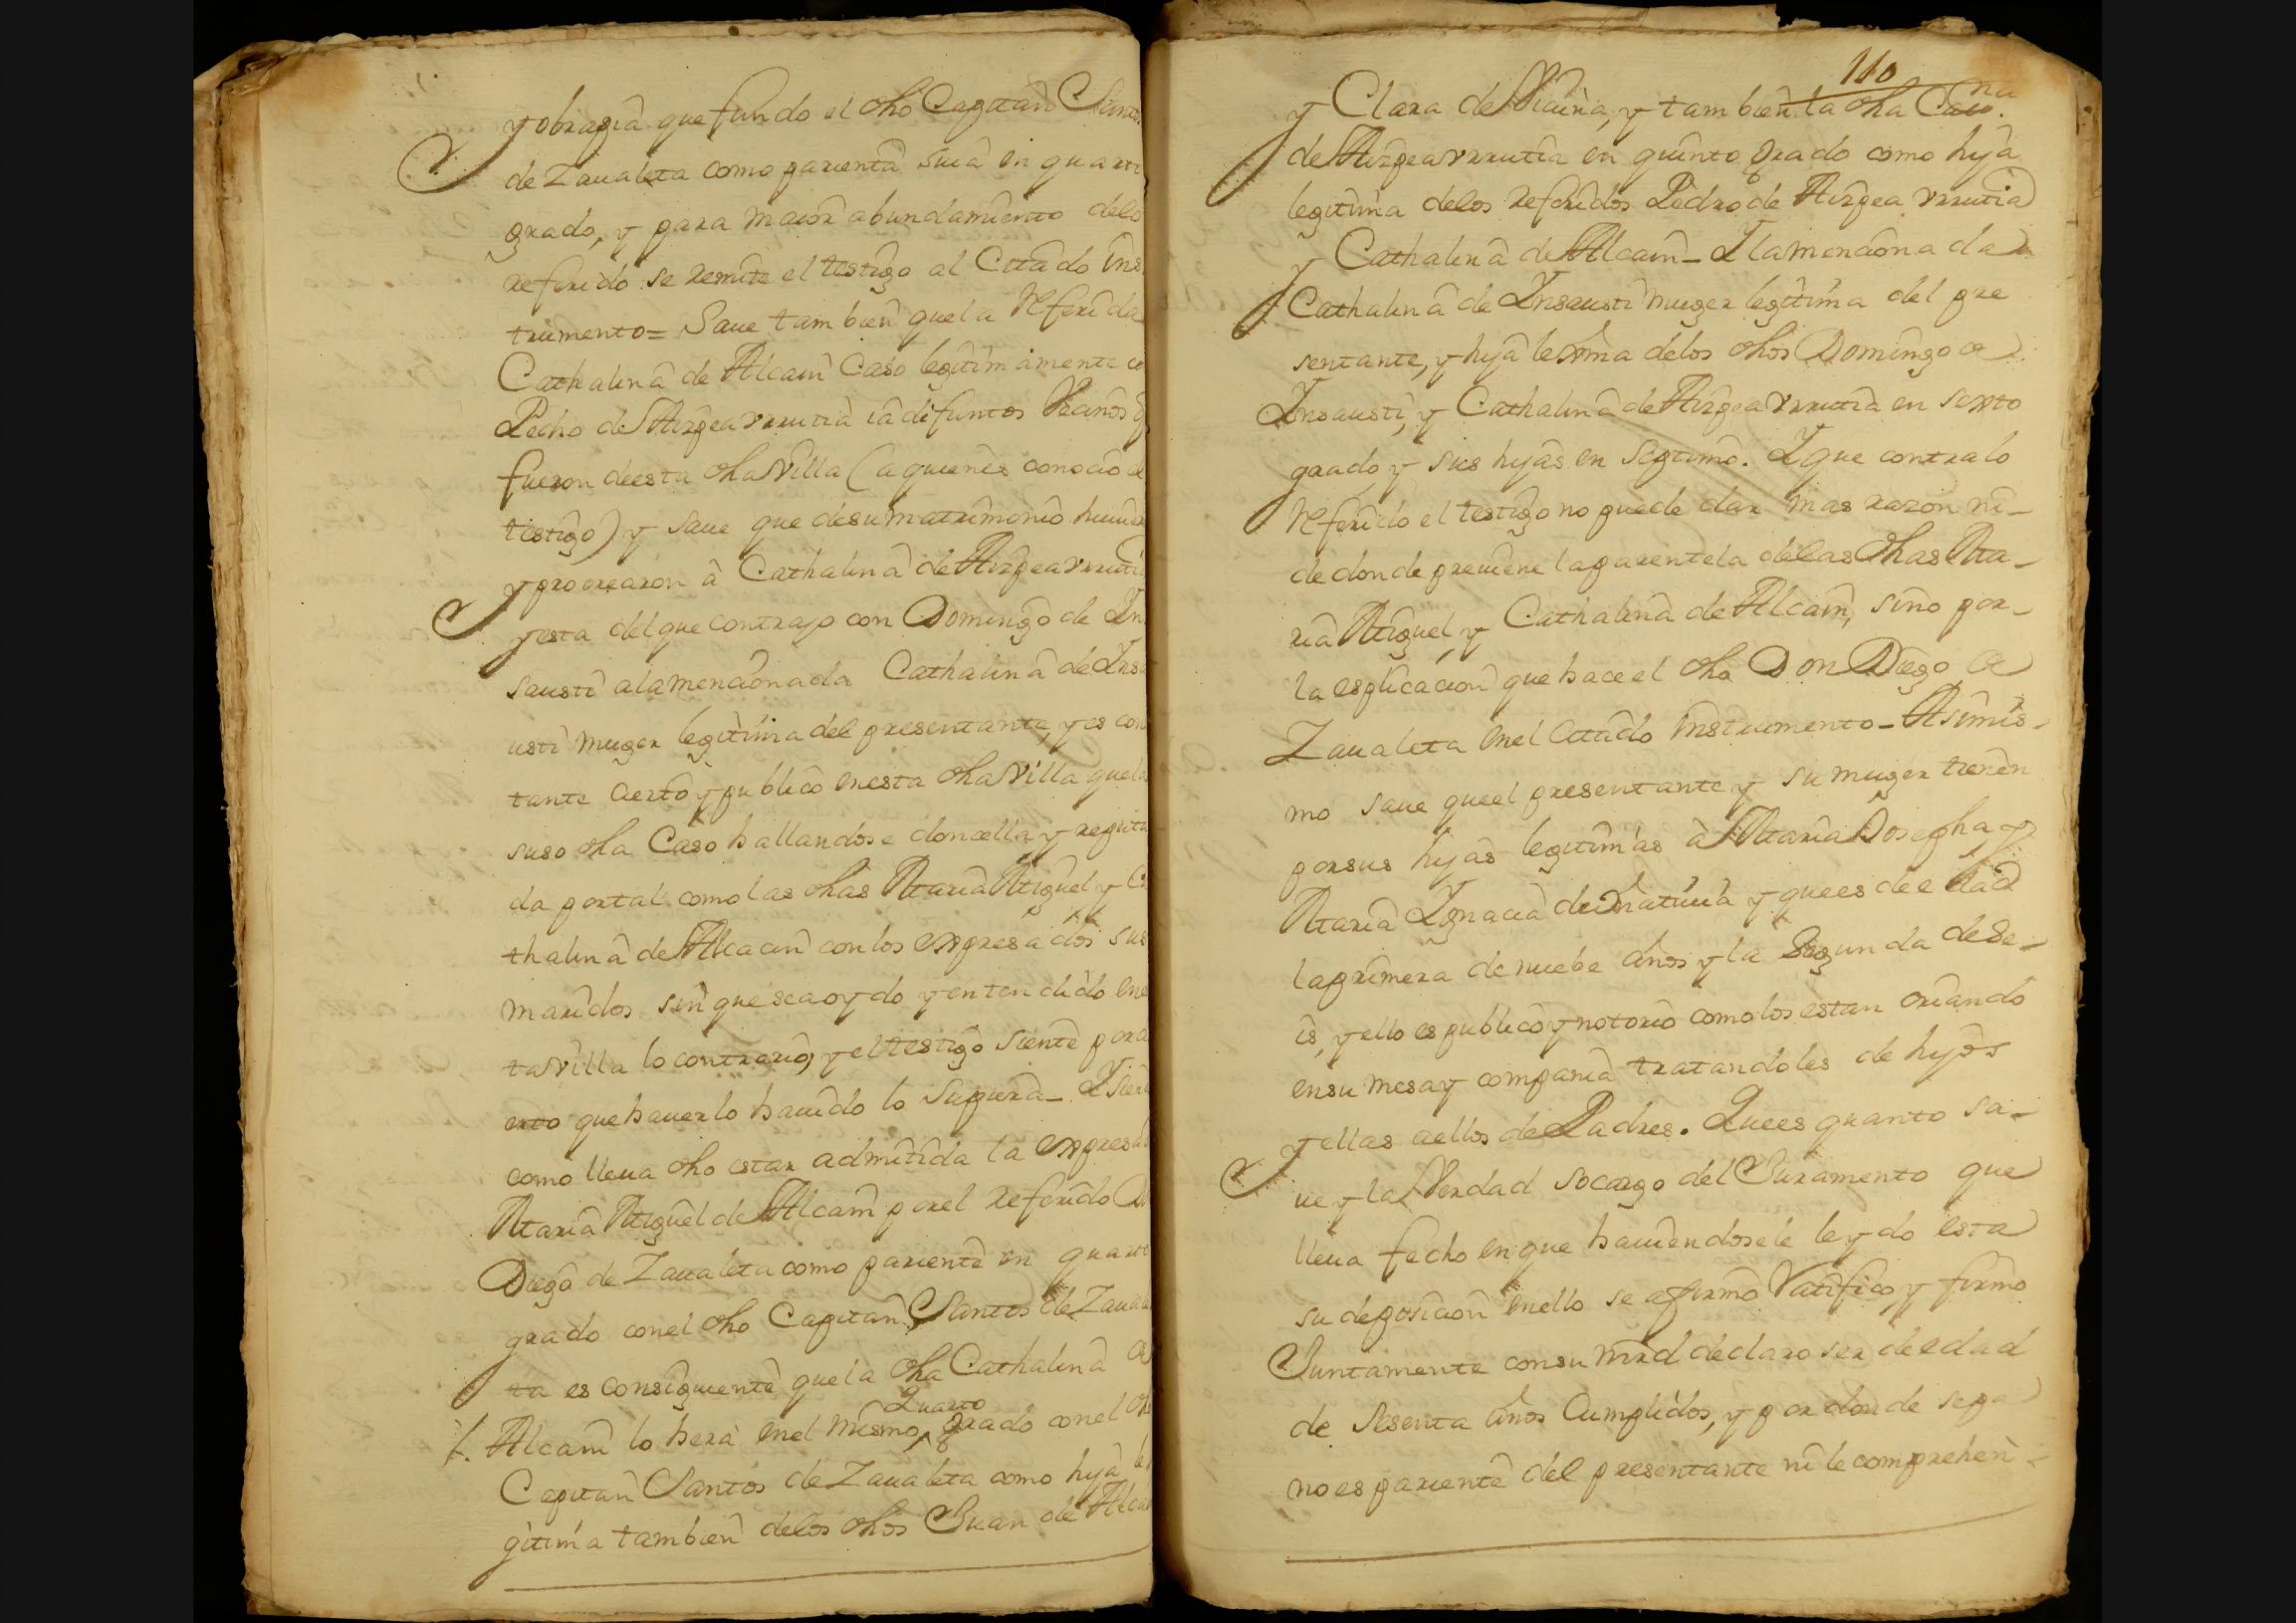 y obrapia que fundo el dho Capitan Santos
de Zaualeta como parienta suia en quarto
grado, y para maior abundamiento delo
referido se remite el testigo al Citado ins
trumento = Saue tambien que la Referida
Cathalina de Alcain Caso legitimamente co
Pedro de Aizpea vrrutia ia difuntos Vecinos q
fueron de esta dha Villa (a quienes conocio el
testigo) y saue que de su matrimonio huuier
y procrearon â Cathalina de Aizpea vrruti
y esta del que contrajo con Domingo de In
sausti ala mencionada Cathalina de Insa
usti muger legitima del presentante, y es con
tante cierto y publico en esta dha Villa que la
suso dha Caso hallandose doncella y reputa
da por tal como las dhas Maria Miguel y Ca
thalina de Alcain con los expresados sus
maridos sin que sea oydo y entendido en es
ta Villa lo contrario, y el testigo siente por ci
erto que hauerlo hauido lo supiera _ Y siend
como lleua dho estar admitida la expresad
Maria Miguel de Alcain por el referido Dn
Diego de Zaualeta como pariente en quarto
grado con el dho Capitan Santos de Zauale
ta es consiguiente que la dha Cathalina de
Quarto
Alcain lo herà en el mismo ^ grado con el dho
Capitan Santos de Zaualeta como hija le
gitima tambien delos dhos Juan de Alcain
110
y Clara de Vicuña, y tambien la dha Cathna
de Aizpea vrrutia en quinto grado como hija
legitima delos referidos Pedro de Aizpea vrrutia
y Cathalina de Alcain _ Y la mencionada
Cathalina de Insausti muger legitima del pre
sentante, y hija lexma delos dhos Domingo de
Insausti, y Cathalina de Aizpea vrrutia en sexto
grado y sus hijas en septimo. Y que contra lo
Referido el testigo no puede dar mas razon ni _
de donde preuiene la parentela de las dhas Ma _
ria Miguel, y Cathalina de Alcain, sino por _
la esplicacion que hace el dho Don Diego de
Zaualeta en el Citado instrumento _ Asimis _
mo saue que el presentante y su muger tienen
por sus hijas legitimas à Maria Josepha y
Maria Ygnacia de y que es de edad
la primera de nuebe años y la Segunda de Se _
is, y ello es publico y notorio como los estan criando
en su mesa y compania tratandoles de hijos
y ellas a ellos de Padres. Que es quanto sa _
ue y la Verdad socargo del Juramento que
lleua fecho en que hauiendosele leydo esta
su deposicion en ello se afirmo Ratifico, y firmo
Juntamente con su mrd declaro ser de edad
de sesenta años Cumplidos, y por donde sepa
no es pariente del presentante ni le comprehen _